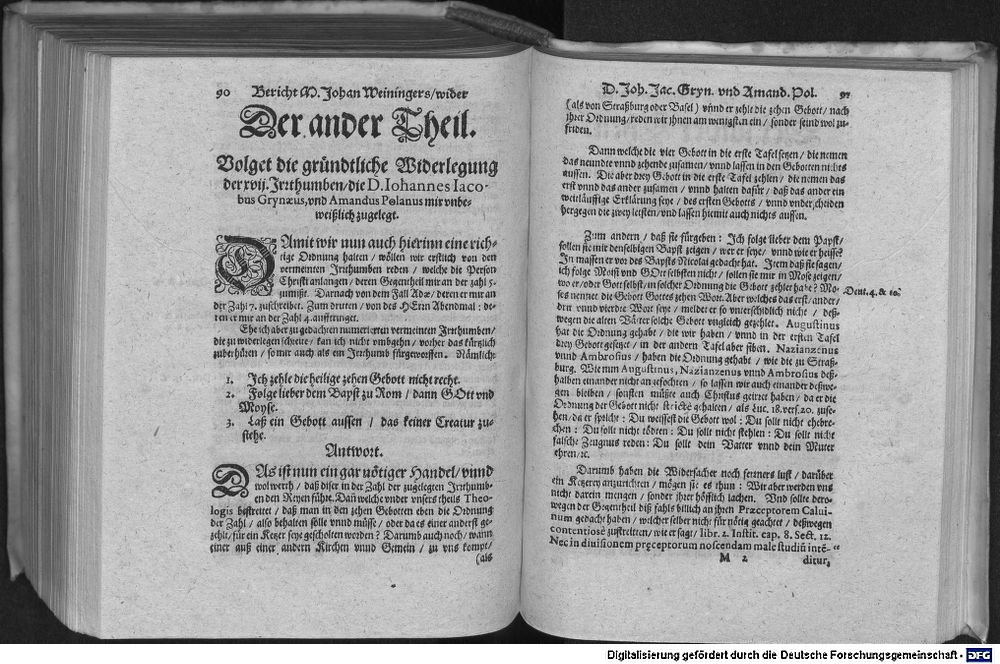 90 Bericht M. Johan Weiningers/wider
Der ander Theil.
Volget die gründtliche Widerlegung
der xvij. Irrthumben/die D. Iohannes Iaco-
bus Grynæus, vnd Amandus Polanus mir vnbe-
weißlich zugelegt.
DAmit wir nun auch hierinn eine rich-
tige Ordnung halten / wöllen wir erstlich von den
vermeinten Irrthumben reden / welche die Person
Christi anlangen / deren Gegentheil mir an der zahl 5.
zumißt. Darnach von dem Fall Adæ / deren er mir an
der Zahl 7. zuschreibet. Zum dritten / von des HErrn Abendmal : de-
ren er mir an der Zahl 4. aufftringet.
Ehe ich aber zu gedachten numerierten vermeinten Irrthumben/
die zu widerlegen schreite / kan ich nicht vmbgehn / vorher das kürtzlich
zuberhüren / so mir auch als ein Irrthumb fürgeworffen. Nämlich:
1. Ich zehle die heilige zehen Gebott nicht recht.
2. Folge lieber dem Bapst zu Rom / dann GOtt vnd
Moyse.
3. Laß ein Gebott aussen / das keiner Creatur zu-
stehe.
Antwort.
DAs ist nun ein gar nötiger Handel/ vnnd
wol werth / daß diser in der Zahl der zugelegten Irrthumb-
en den Reyen führe. Dañ welche vnder vnsers theils Theo-
logis bestreitet / daß man in den zehen Gebotten eben die Ordnung
der Zahl / also behalten sölle vnnd müsse / oder da es einer anderst ge-
zehlt / für ein Ketzer seye gescholten worden ? Darumb auch noch / wann
einer auß einer andern Kirchen vnnd Gemein / zu vns kompt/
(als
D. Joh. Jac. Gryn. vnd Amand. Pol. 91
(als von Straßburg oder Basel) vnnd er zehle die zehen Gebott / nach
ihrer Ordnung / reden wir jhnen am wenigsten ein / sonder seind wol zu-
friden.
Dann welche die vier Gebott in die erste Tafel setzen / die nemen
das neundte vnnd zehende zusamen / vnnd lassen in den Gebotten nichts
aussen. Die aber drey Gebott in die erste Tafel zehlen / die nemen das
erst vnnd das ander zusamen / vnnd halten dafür / daß das ander ein
weitläuffige Erklärung seye / des ersten Gebotts / vnnd vnderscheiden
hergegen die zwey letsten / vnd lassen hiemit auch nichts aussen.
Zum andern / daß sie fürgeben : Ich folge lieber dem Papst/
sollen sie mir denselbigen Bapst zeigen / wer er seye / vnnd wie er heisse?
In massen er vor des Bapsts Nicolai gedacht hat. Item daß sie sagen/
ich folge Moisi vnd GOtt selbsten nicht / sollen sie mir in Mose zeigen/
wo er / oder Gott selbst / in solcher Ordnung die Gebott gezehlet habe ? Mo-
ses nennet die Gebott Gottes zehen Wort. Aber welches das erst / ander/
dritt vnnd vierdte Wort seye / meldet er so vnderschidlich nicht / deß-
wegen die alten Vätter solche Gebott vngleich gezehlet. Augustinus
hat die Ordnung gehabt / die wir haben / vnnd in der ersten Tafel
drey Gebott gesetzet / in der andern Tafel aber siben. Nazianzenus
vnnd Ambrosius / haben die Ordnung gehabt / wie die zu Straß-
burg. Wie nun Augustinus, Nazianzenus vnnd Ambrosius deß-
halben einander nicht angefochten / so lassen wir auch einander deßwe-
gen bleiben / sonsten müßte auch Christus geirret haben / da er die
Ordnung der Gebott nicht strictè gehalten / als Luc. 18. vers. 20. zuse-
hen / da er spricht : Du weissest die Gebott wol : Du solt nicht ehebre-
chen : Du solt nicht tödten : Du solt nicht stehlen : Du solt nicht
falsche Zeugnus reden : Du solt dein Vatter vnnd dein Muter
ehren/ꝛc.
Deut. 4. & 10.
Darumb haben die Widersacher noch ferrners lust / darüber
ein Ketzerey anzurichten / mögen sie es thun : Wir aber werden vns
nicht darein mengen / sonder jhrer höfflich lachen. Vnd solte dero-
wegen der Gegentheil diß fahls billich an jhren Præceptorem Calui-
num gedacht haben / welcher selber nicht für nötig geachtet / deßwegen
contentiosè zustreitten / wie er sagt / libr. 2. Instit. cap. 8. Sect. 12.
Nec in diuisionem præceptorum noscendam male studiũ inté-
M 2 ditur,
Digitalisierung gefördert durch die Deutsche Forschungsgemeinschaft - DFG